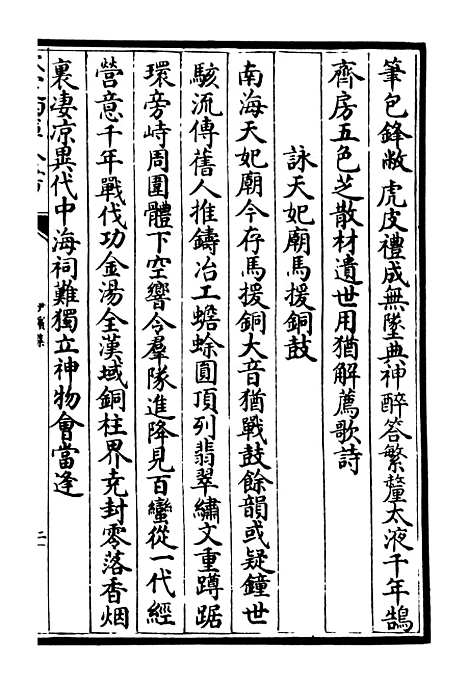 筆包鋒敝虎皮禮成無墜典神醉答繁釐太液千年鵠
齊房五色芝散材遺世用猶解薦歌詩
詠天妃廟馬援銅鼓
南海天妃廟今存馬援銅大音猶戰鼓餘韻或疑鐘世
駭流傳舊人推鑄冶工蟾蜍圓頂列翡翠繡文重蹲踞
環旁峙周圍體下空響令羣隊進降見百蠻從一代經
營意千年戰伐功金湯全漢域銅柱界堯封零落香烟
裏淒凉異代中海祠難獨立神物會當逢